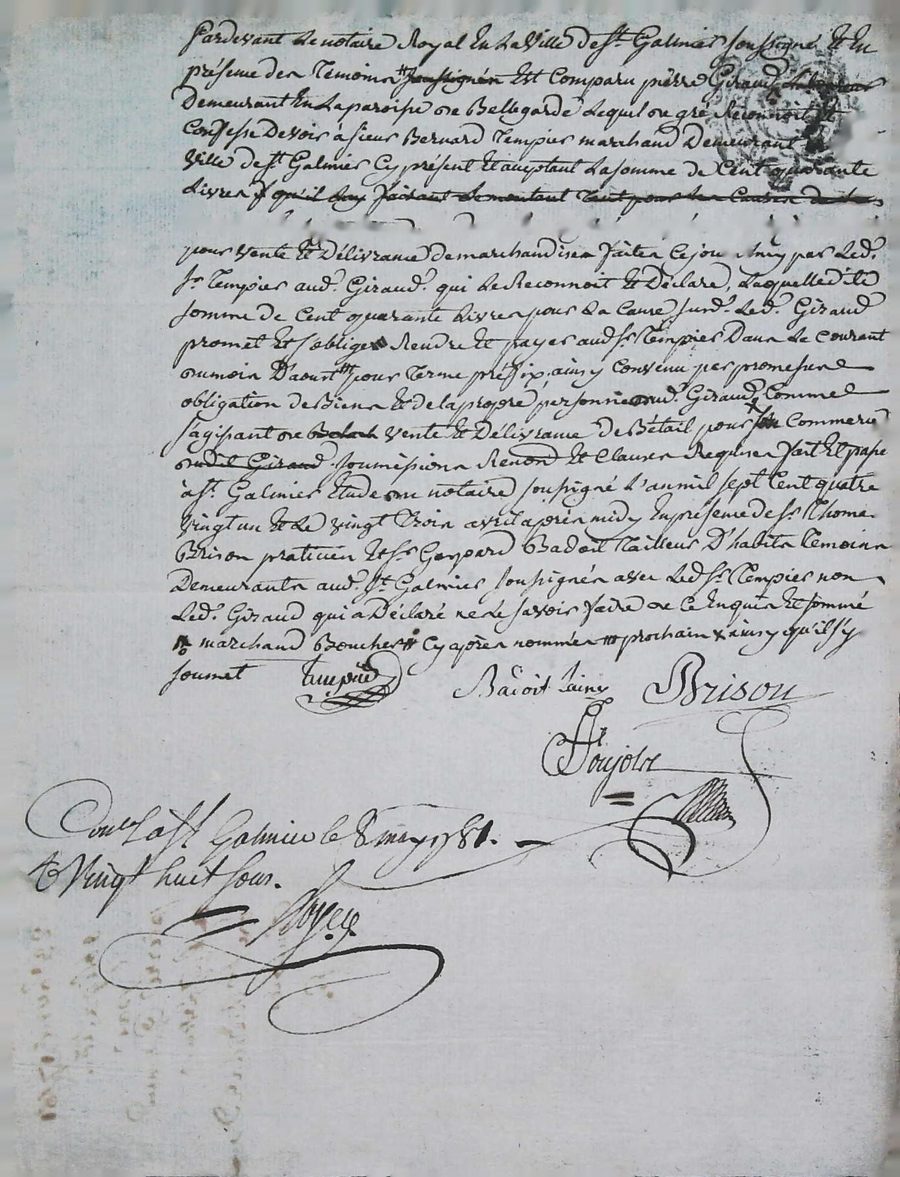 Pardevant Le notaire Royal En La Ville de St. Galmier soussigné Et En
présence des Temoins # soussignés Est Comparu pierre Giraud
Demeurant En La paroisse de Bellegarde Lequel de gré Reconnoit Et
Confesse Devoir à sieur Bernard Tempier marchand Demeurant
Ville de St. Galmier Cy présent Et acceptant La somme de Cent quarante
Livres qu'il Luy faisant Le montant Tant pour Les Causes
pour vente Et Délivrance de marchandises faites Ce jourd'huy par Led.
Sr. Tempier aud. Giraud. qui Le Reconnoit Et Déclare, Laquelle dite
somme de Cent quarante Livres pour La Cause susd. Led. Giraud
promet Et s'oblige Rendre Et payer aud. Sr. Tempier Dans Le Courant
du mois D'aoust # pour Terme préfix, ainsy Convenu par promesse
obligation de Biens Et de La propre personne dud. Giraud, Comme
s'agissant de vente Et Délivrance de Bétail pour son Commerce
dudit Giraud soumissions Renond. Et Clauses Requises fait Et passé
à St. Galmier Etude du notaire soussigné L'an mil sept Cent quatre
vingt un Et Le vingt Trois avril après midy En présence de Sr. Thomas
Brison praticien Et Sr. Gaspard Badoit Tailleur D'habits Temoins
Demeurants aud. St. Galmier soussignés avec Led. Sr. Tempier non
Led. Giraud qui a Déclaré ne Le savoir faire de Ce Enquis Et sommé
# marchand Boucher # Cy après nommés # prochain x ainsy qu'il s'y
soumet Tempier Badoit Lainé Brison
Conlé à St Galmier le 8 may 1781.
R vingt huit sous.